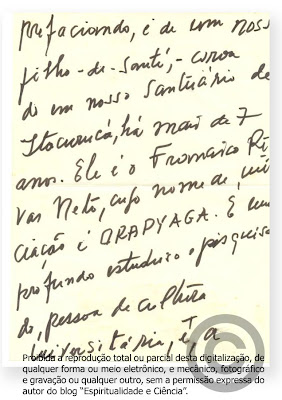 prefaciando, é de um nosso
filho-de-santé, - coroa
do em nosso santuário de
Itacuruçá, há mais de 7
anos. Ele é o Francisco Ri
vas Neto, cujo nome de ini
ciação é ORAPYAGA. É um
profundo estudioso, pesquisa
do, pessoa de cultura
Universitária, é a
Proibida a reprodução total ou parcial desta digitalização, de
qualquer forma ou meio eletrônico, e mecânico, fotográfico
e gravação ou qualquer outro, sem a permissão expressa do
autor do blog "Espiritualidade e Ciência".
©